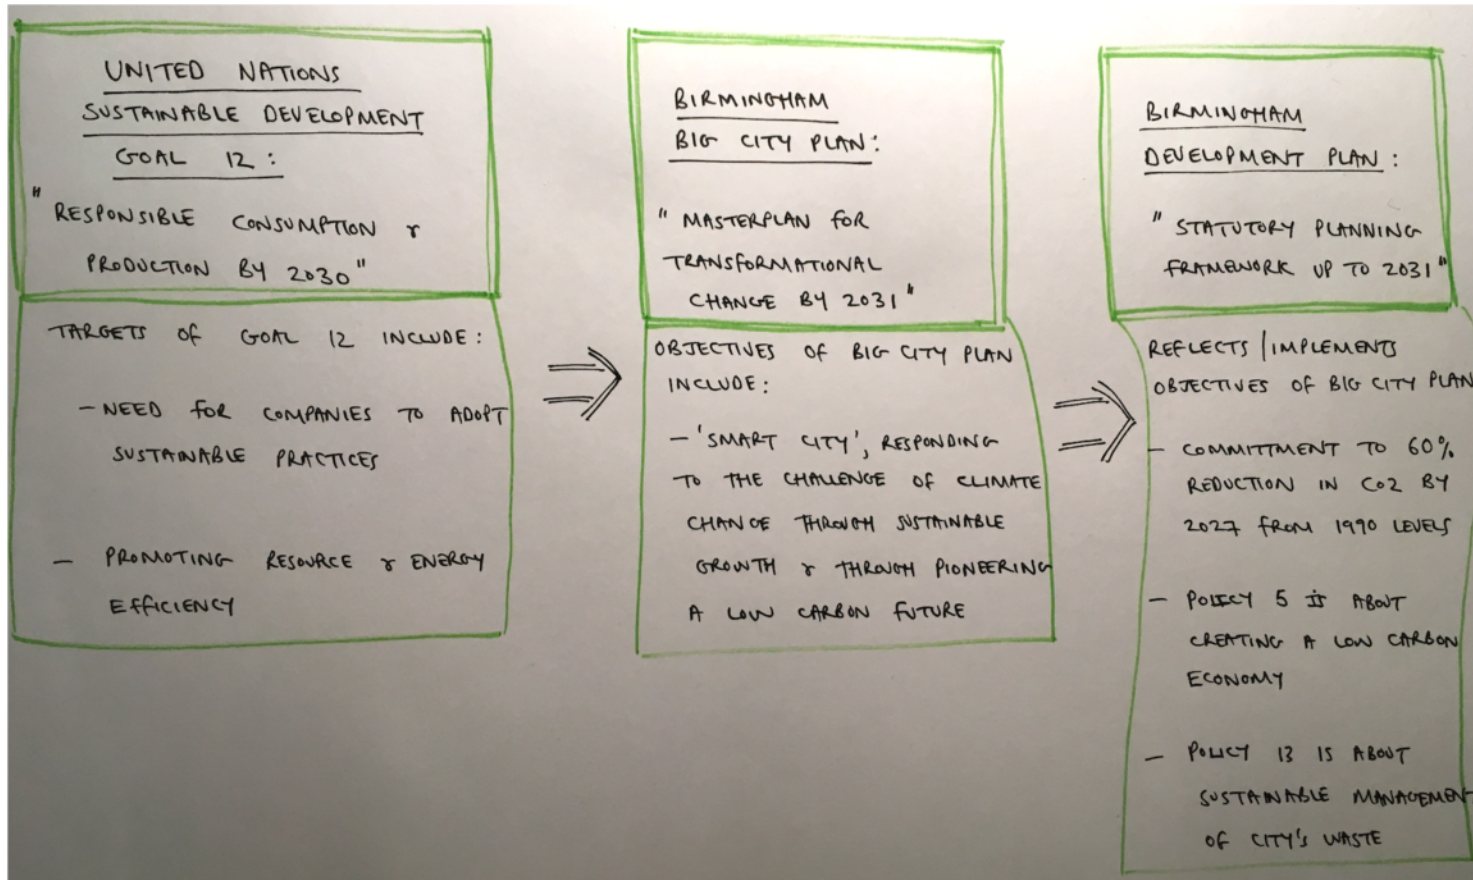 UNITED NATIONS
SUSTAINABLE DEVELOPMENT
GOAL 12 :
"RESPONSIBLE CONSUMPTION &
PRODUCTION BY 2030"
TARGETS OF GOAL 12 INCLUDE :
- NEED FOR COMPANIES TO ADOPT
SUSTAINABLE PRACTICES
- PROMOTING RESOURCE & ENERGY
EFFICIENCY
BIRMINGHAM
BIG CITY PLAN :
"MASTERPLAN FOR
TRANSFORMATIONAL
CHANGE BY 2031"
OBJECTIVES OF BIG CITY PLAN
INCLUDE :
- 'SMART CITY', RESPONDING
TO THE CHALLENGE OF CLIMATE
CHANGE THROUGH SUSTAINABLE
GROWTH & THROUGH PIONEERING
A LOW CARBON FUTURE
BIRMINGHAM
DEVELOPMENT PLAN :
"STATUTORY PLANNING
FRAMEWORK UP TO 2031"
REFLECTS / IMPLEMENTS
OBJECTIVES OF BIG CITY PLAN
- COMMITTMENT TO 60%
REDUCTION IN CO2 BY
2027 FROM 1990 LEVELS
- POLICY 5 IS ABOUT
CREATING A LOW CARBON
ECONOMY
- POLICY 13 IS ABOUT
SUSTAINABLE MANAGEMENT
OF CITY'S WASTE